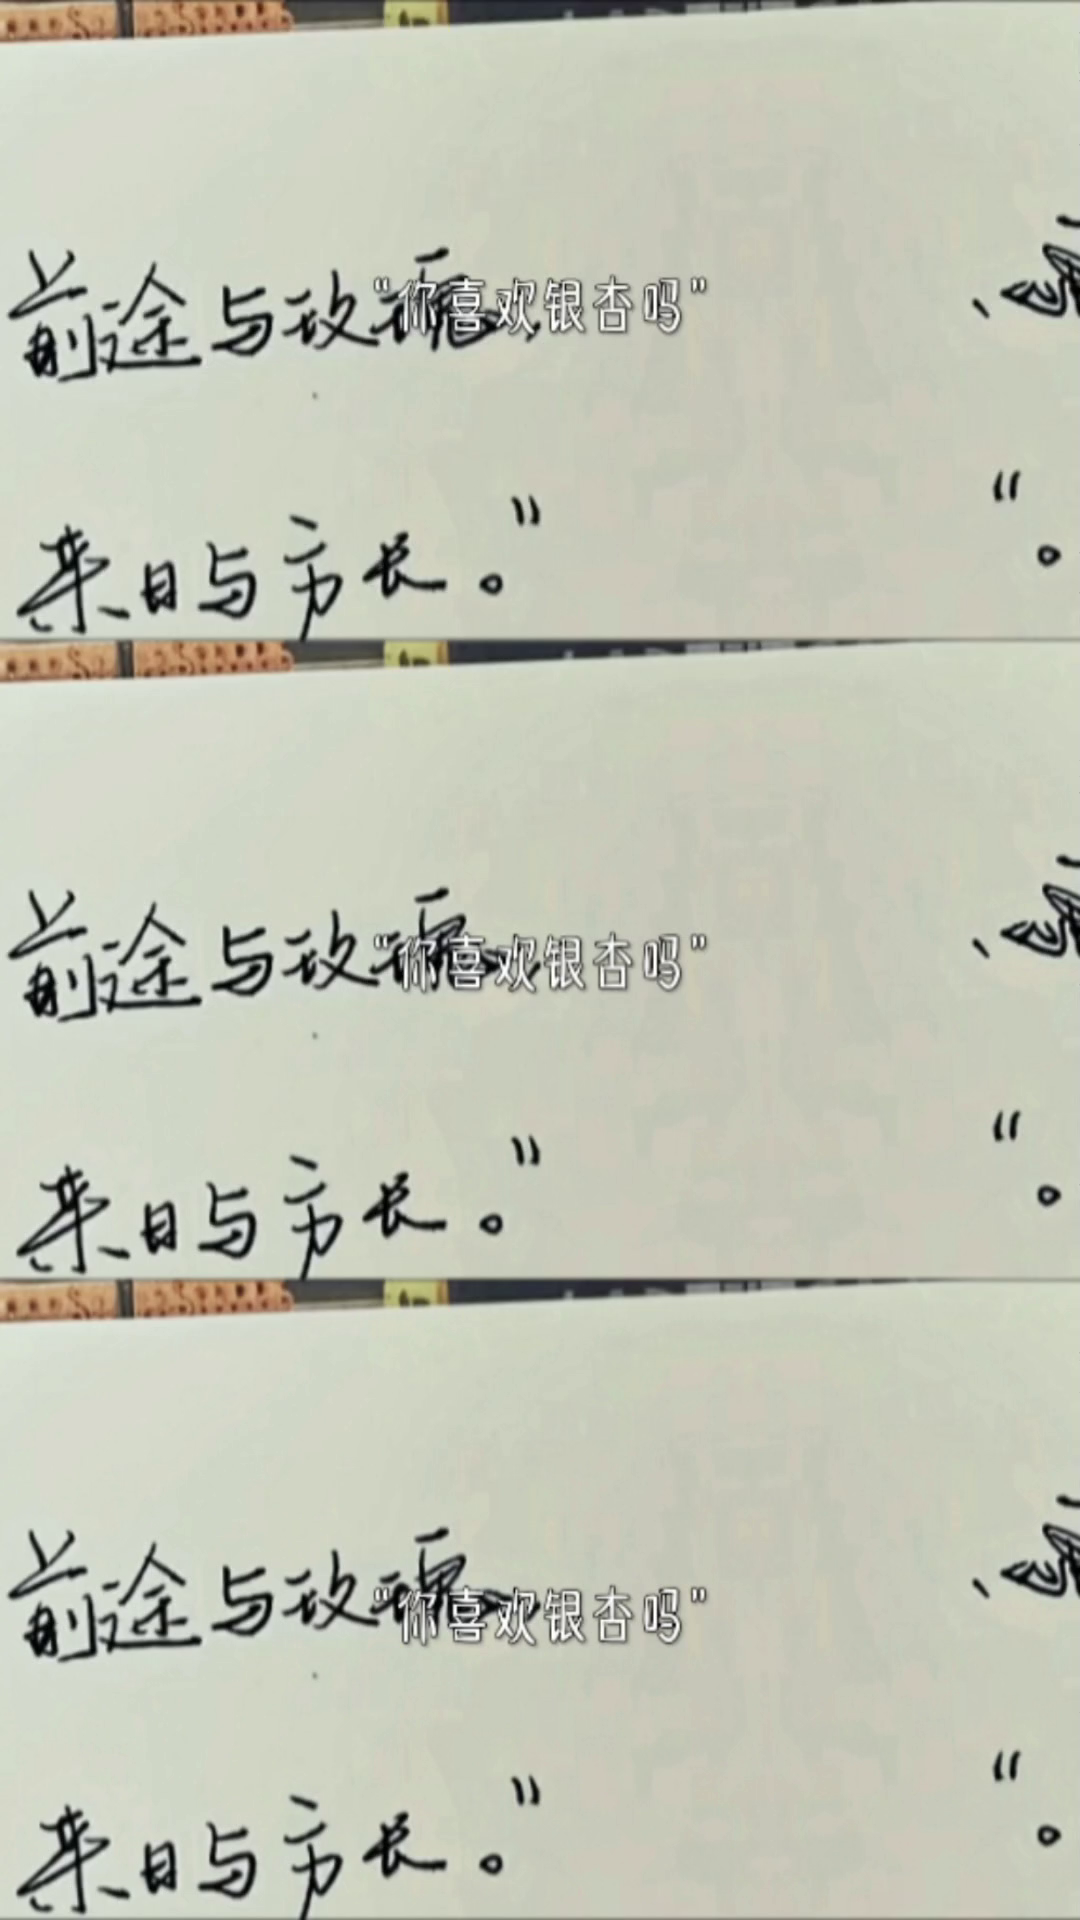 前途与玫瑰、
“你喜欢银杏吗”
来日与方长。"
前途与玫瑰、
“你喜欢银杏吗”
来日与方长。"
前途与玫瑰、
“你喜欢银杏吗”
来日与方长。"